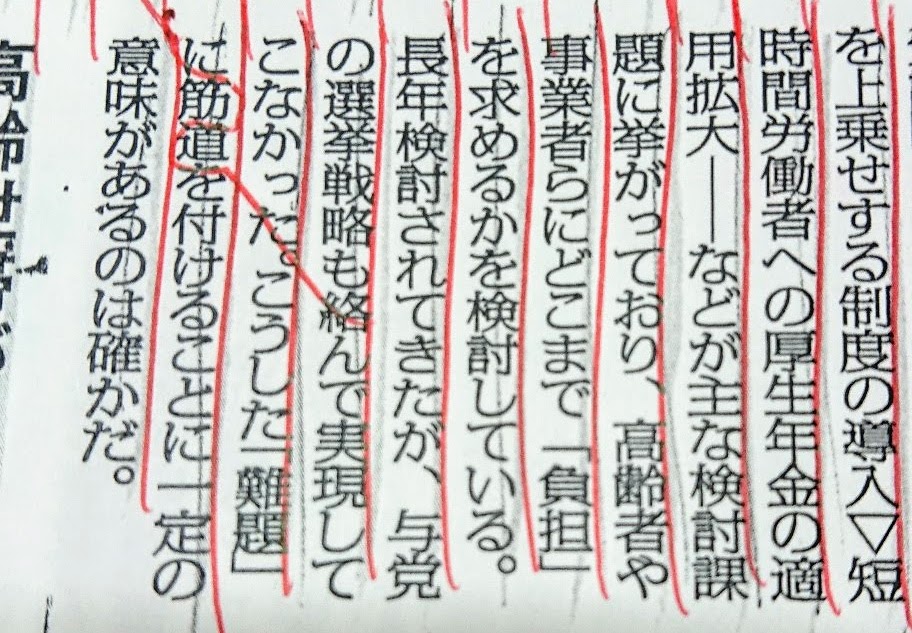 を上乗せする制度の導入▽短
時間労働者への厚生年金の適
用拡大――などが主な検討課
題に挙がっており、高齢者や
事業者らにどこまで「負担」
を求めるかを検討している。
長年検討されてきたが、与党
の選挙戦略も絡んで実現して
こなかった。こうした「難題」
に筋道を付けることに一定の
意味があるのは確かだ。